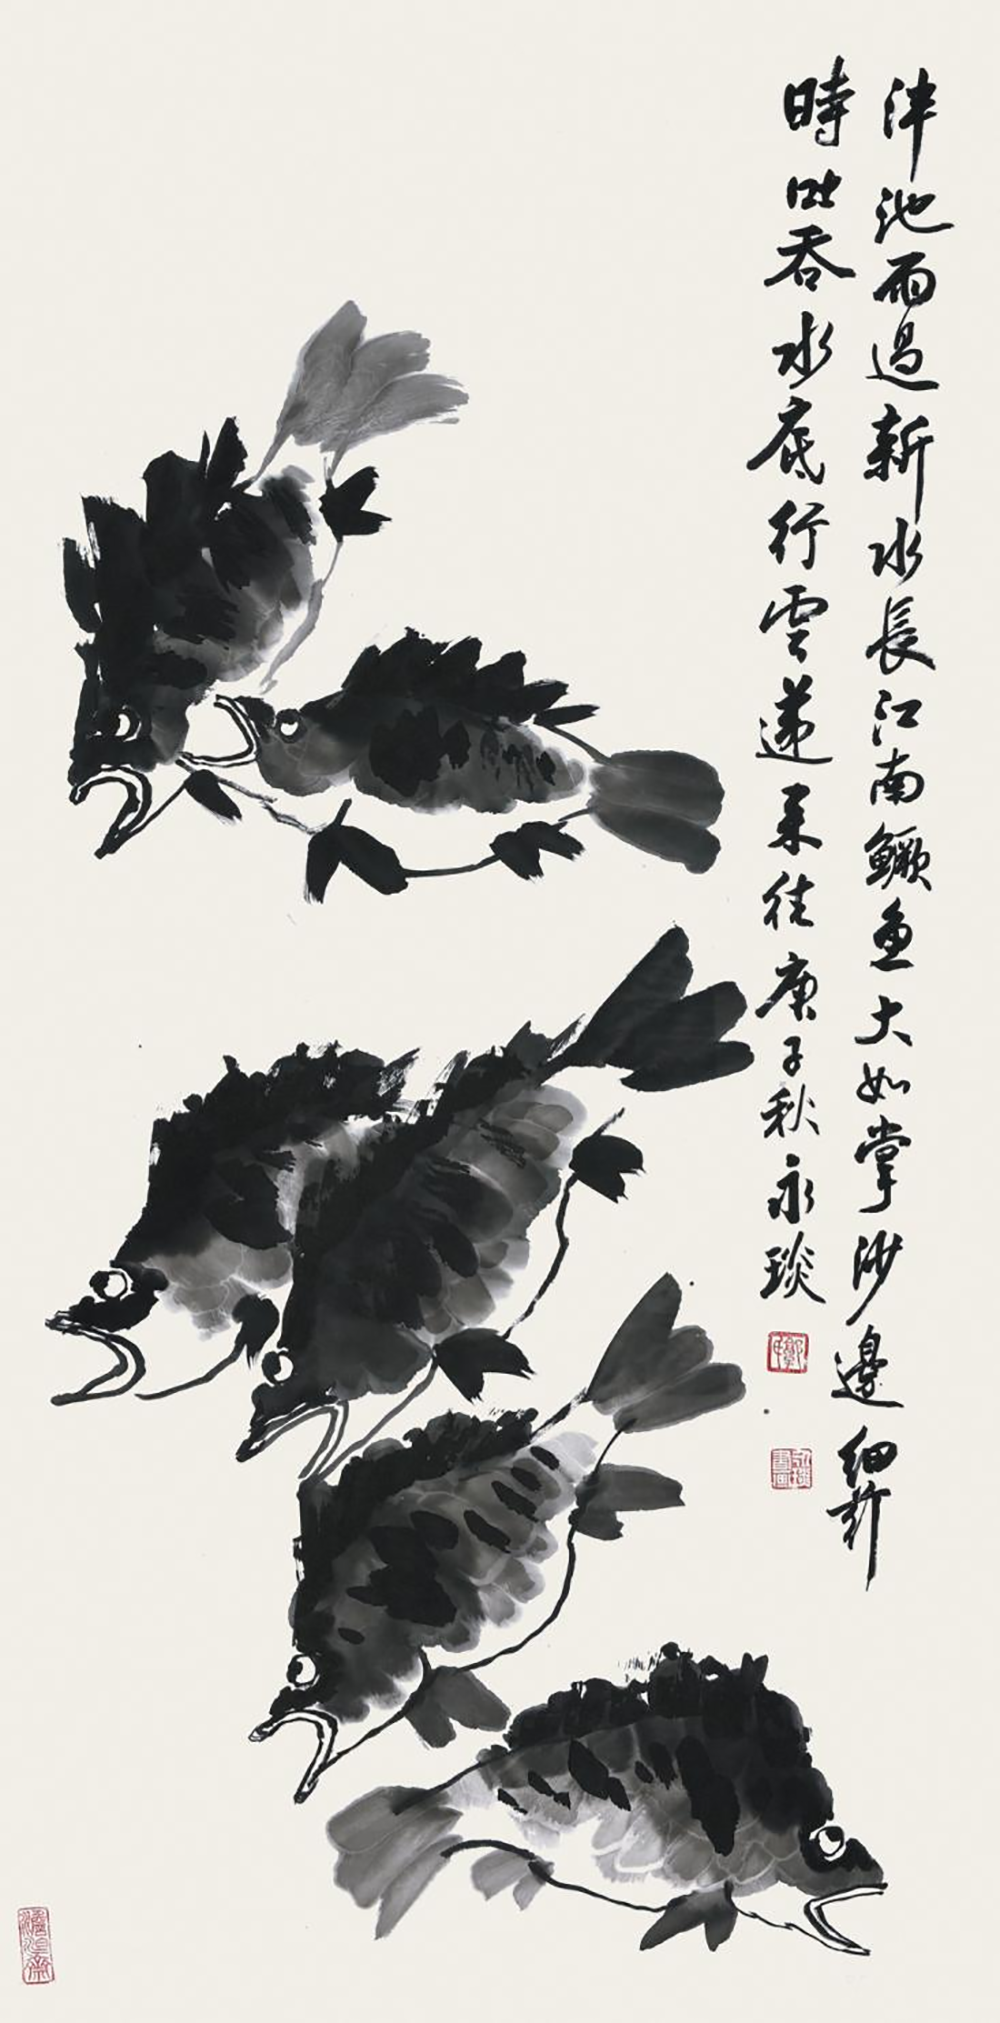 泮池雨過新水長江南鱖魚大如掌沙邊細荇
時吐吞水底行雲遞來往庚子秋永琰